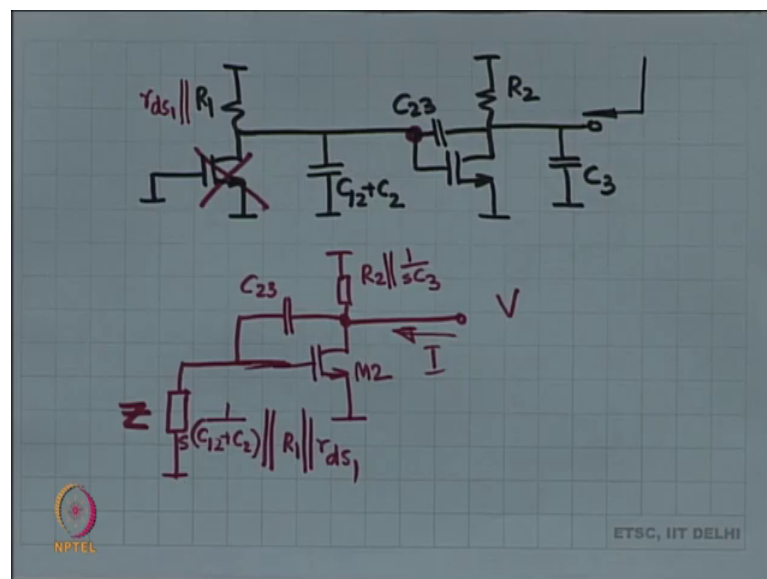 r_ds1 || R1
C23
R2
C12+C2
C3
C23
R2 || 1/sC3
V
I
M2
Z
1/s(C12+C2) || R1 || r_ds1
NPTEL
ETSC, IIT DELHI